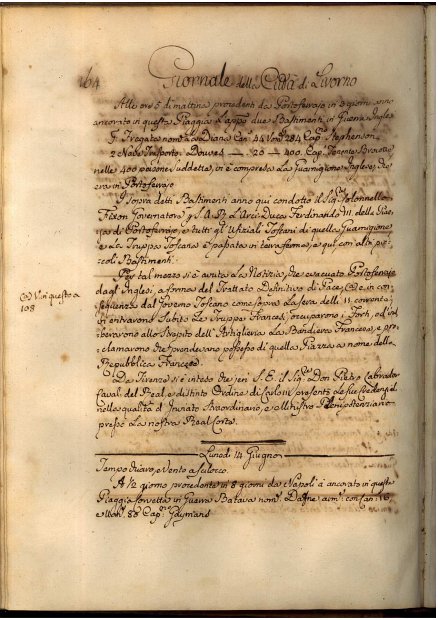 164 Giornale della Città di Livorno
Alle ore 5 di mattina procedenti da Portoferraio in 3 giorni anno
ancorato in questa Piaggia l'app.o due Bastimenti in Guerra Ingle
F. Fregata nom.a la Diana Can. 44 Uom. 284 Cap. Stephenson
2 Nave Trasporto Douvres — 20 — 400. Cap.
nelle 400 persone suddette, in è compresa la Guarnigione Inglese, che
era in Portoferraio
I sopra detti Bastimenti anno qui condotto il Sig. Colonnello
Fixon Governatore p. S. A. R. l'Arci-Duca Ferdinando III. della Piaz
za di Portoferraio, e tutti gli Ufiziali Toscani di quella Guarnigione
e La Truppa Toscana è passata in terra ferma, e qui con altri pic
coli Bastimenti
Per tal mezzo si è avuta la Notizia, che evacuato Portoferraio
dagl'Inglesi, a forma del Trattato Definitivo di Pace (a) e in con
seguenza dal Governo Toscano come sopra La sera delli 11. corrente
vi entrarono subito Le Truppe Francesi, occuparono i Forti, ed al
berarono allo Strepito dell'Artiglieria La Bandiera Francese, e pro
clamarono che prendevano possesso di quella Piazza a nome della
Repubblica Francese
(a) V. in questo a
108
Da Firenze si è inteso che jeri S. E. il Sig. Don Pietro Labrador
Caval. del Real, e distinto Ordine di Carlo III presentò Le sue Credenziali
nella qualità d'Inviato Straordinario, e Ministro Plenipotenziario
presso La nostra Real Corte.
Lunedì 14 Giugno
Tempo chiaro, e Vento a Scilocco.
A 1/2 giorno procedente in 8 giorni da Napoli à ancorato in questa
Piaggia Corvetta in Guerra Batava nom. Dafne arm. con Can. 16
e Uom. 88 Cap.